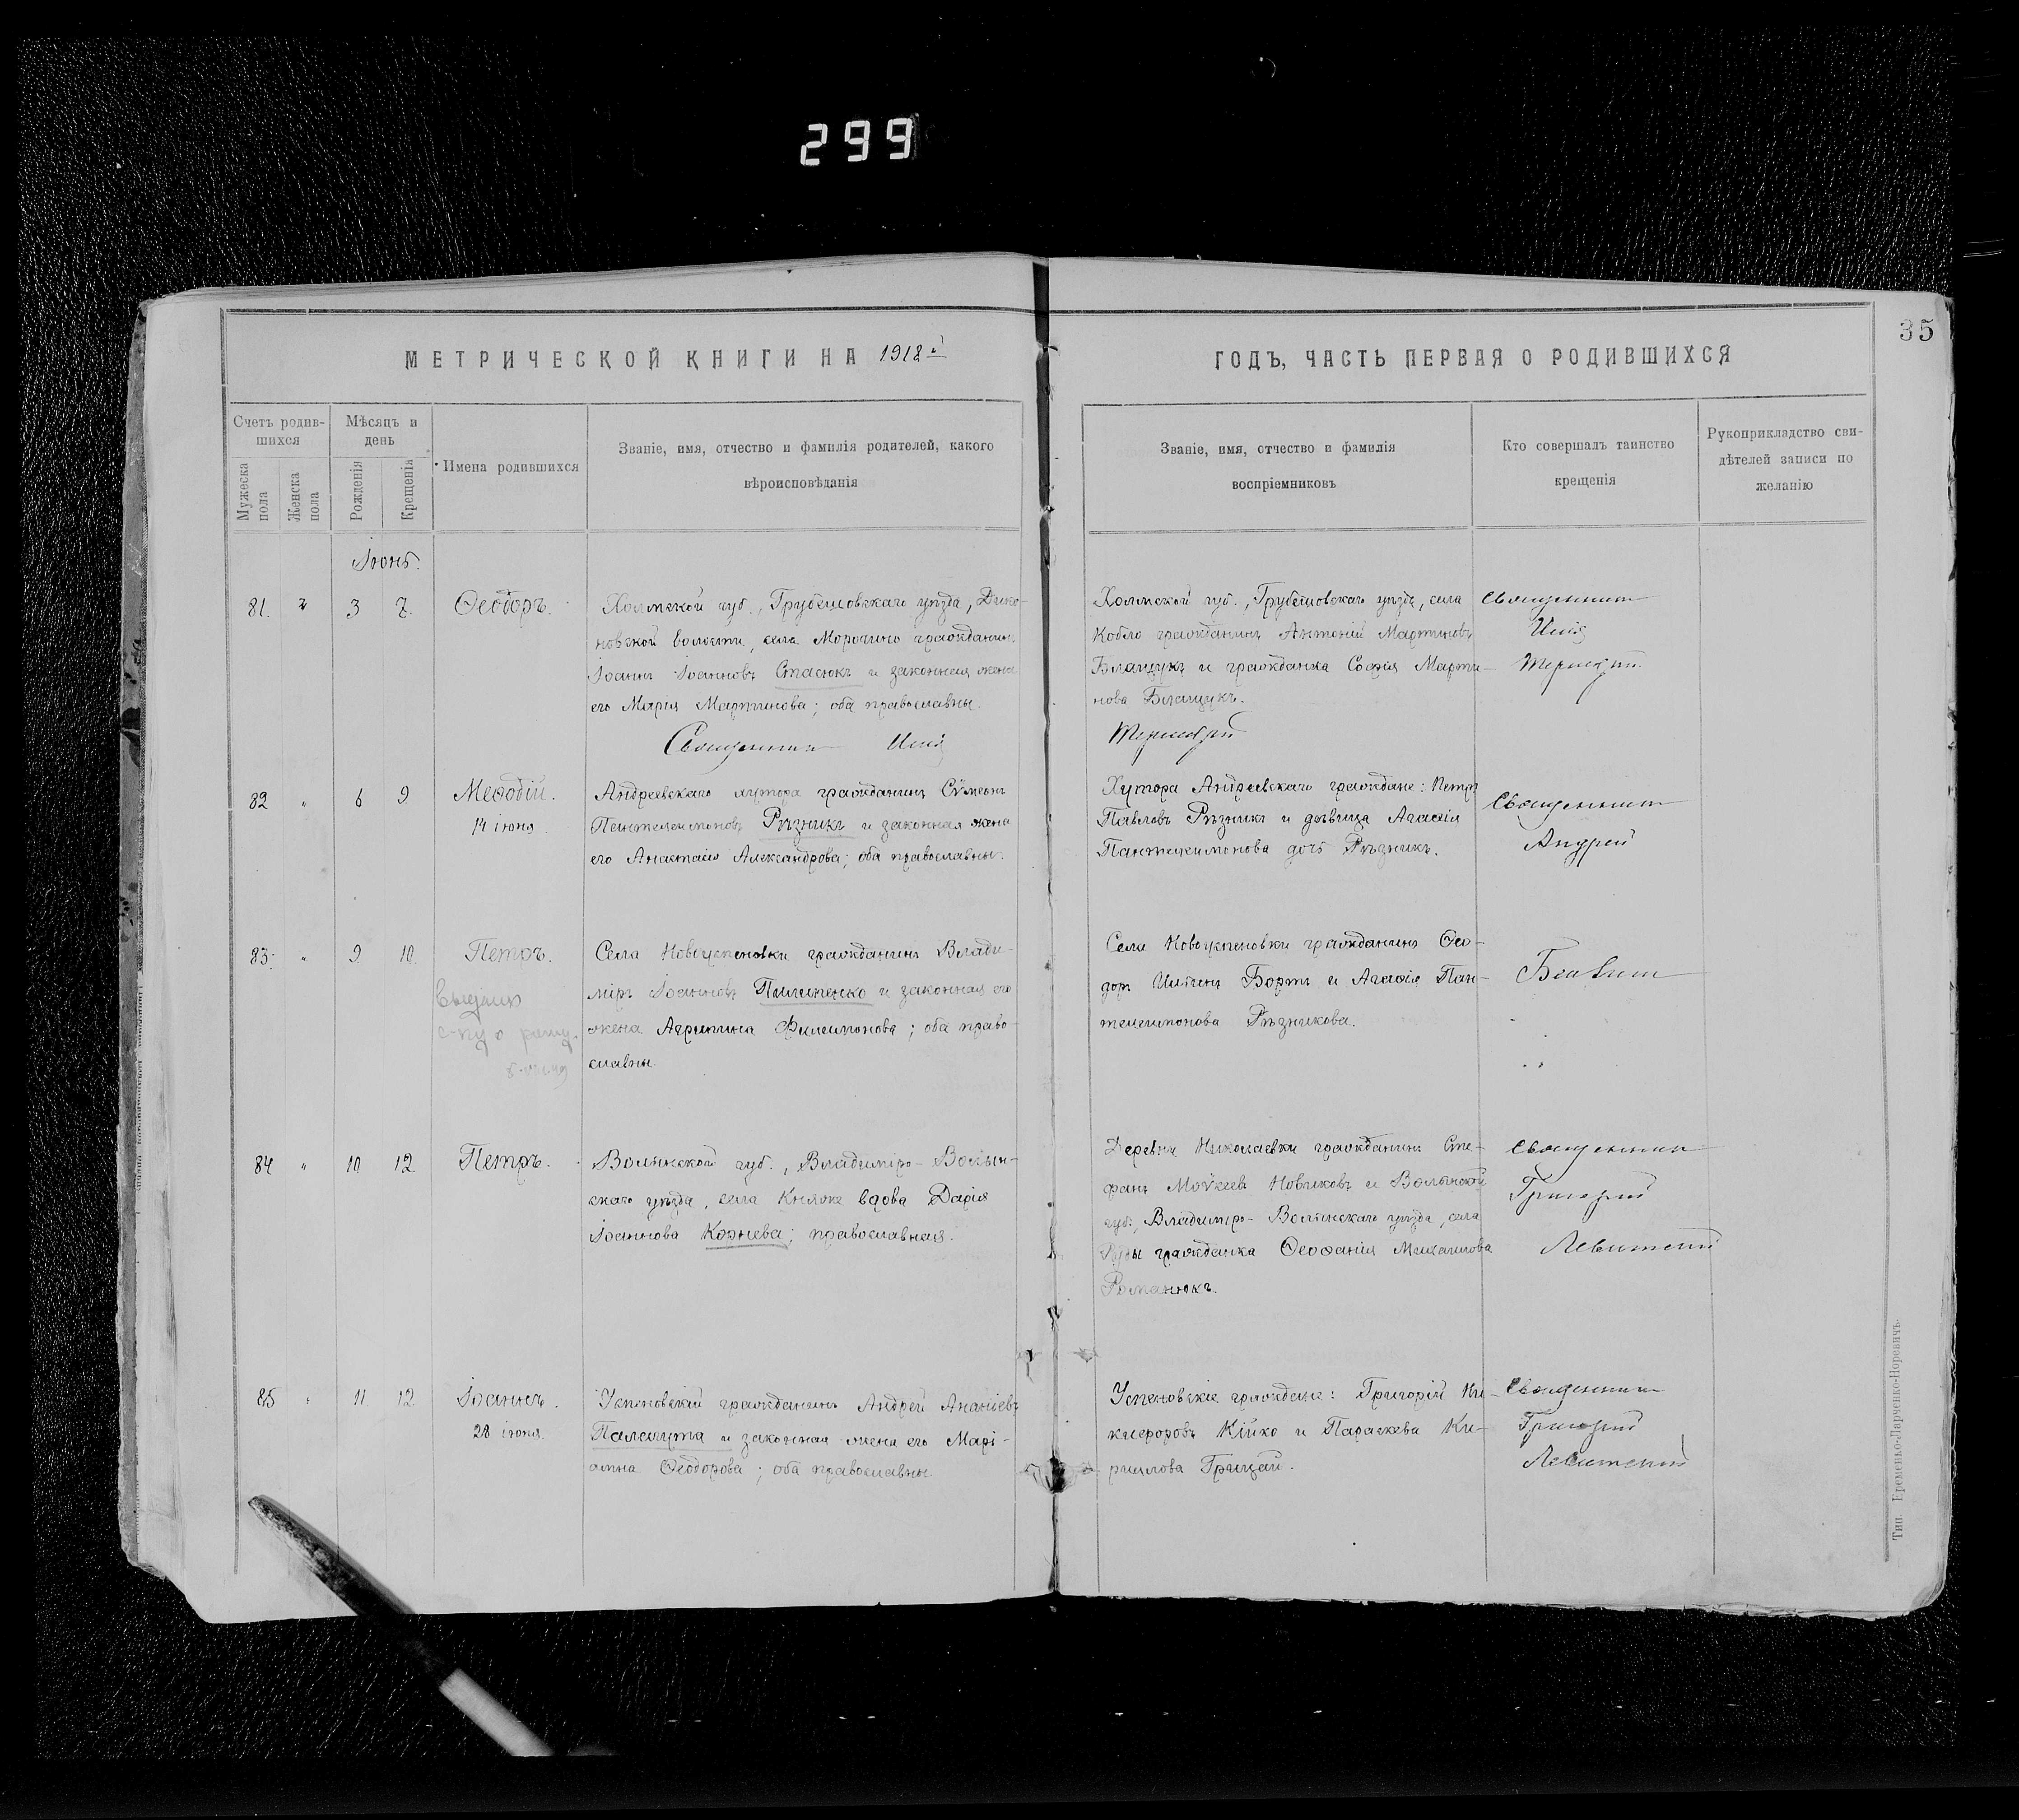 299
35
МЕТРИЧЕСКОЙ КНИГИ НА 1918й
ГОДЪ, ЧАСТЬ ПЕРВАЯ О РОДИВШИХСЯ
Счетъ родив-
шихся
Мужеска
пола
Женска
пола
Мѣсяцъ и
день
Рожденія
Крещенія
Имена родившихся
Званіе, имя, отчество и фамилія родителей, какого
вѣроисповѣданія
Званіе, имя, отчество и фамилія
воспріемниковъ
Кто совершалъ таинство
крещенія
Рукоприкладство сви-
дѣтелей записи по
желанію
Іюнь.
81. " 3 7. Ѳеодоръ.
Холмской губ., Грубешовскаго уѣзда,
новской волости, села Морочино гражданинъ
Іоаннъ Іоанновъ Стасюкъ и законная жена
его Марія Мартинова; оба православны.
Священникъ Илія
Холмской губ., Грубешовскаго уѣзда, села
Кобло гражданинъ Антоній Мартиновъ
Влащукъ и гражданка Софія Марти-
нова Влащукъ.
Священникъ
Илія
82 " 6 9 Меѳодій.
14 іюня
Андреевскаго хутора гражданинъ Сѵмеонъ
Пантелеимоновъ Рѣзникъ и законная жена
его Анастасія Александрова; оба православны.
Хутора Андреевскаго граждане: Петръ
Павловъ Рѣзникъ и дѣвица Агаѳія
Пантелеимонова дочь Рѣзникъ.
Священникъ
Андрей
83. " 9 10 Петръ.
Села Новоуспеновки гражданинъ Влади-
міръ Іоанновъ Пилипенко и законная его
жена Агрипина Филимонова; оба право-
славны.
Села Новоуспеновки гражданинъ Ѳео-
доръ Бортъ и Агаѳія Пан-
телеимонова Рѣзникова.
84 " 10 12 Петръ.
Волынской губ., Владиміро-Волын-
скаго уѣзда, села Княже вдова Дарія
Іоаннова Корнева; православная.
Деревни Николаевки гражданинъ Сте-
фанъ Моѵсеевъ Новиковъ и Волынской
губ., Владиміро-Волынскаго уѣзда, села
гражданка Ѳеофанія Михаилова
Романюкъ.
Священникъ
Григорій
Левитскій
85 " 11 12 Іоаннъ.
28 іюня.
Успеновскій гражданинъ Андрей Ананіевъ
Паламута и законная жена его Марі-
амна Ѳеодорова; оба православны.
Успеновскіе граждане: Григорій Ни-
кифоровъ Кійко и Параскева Ки-
риллова Грицай.
Священникъ
Григорій
Левитскій
Тип. Еременко-Ларченко-Норевичъ.